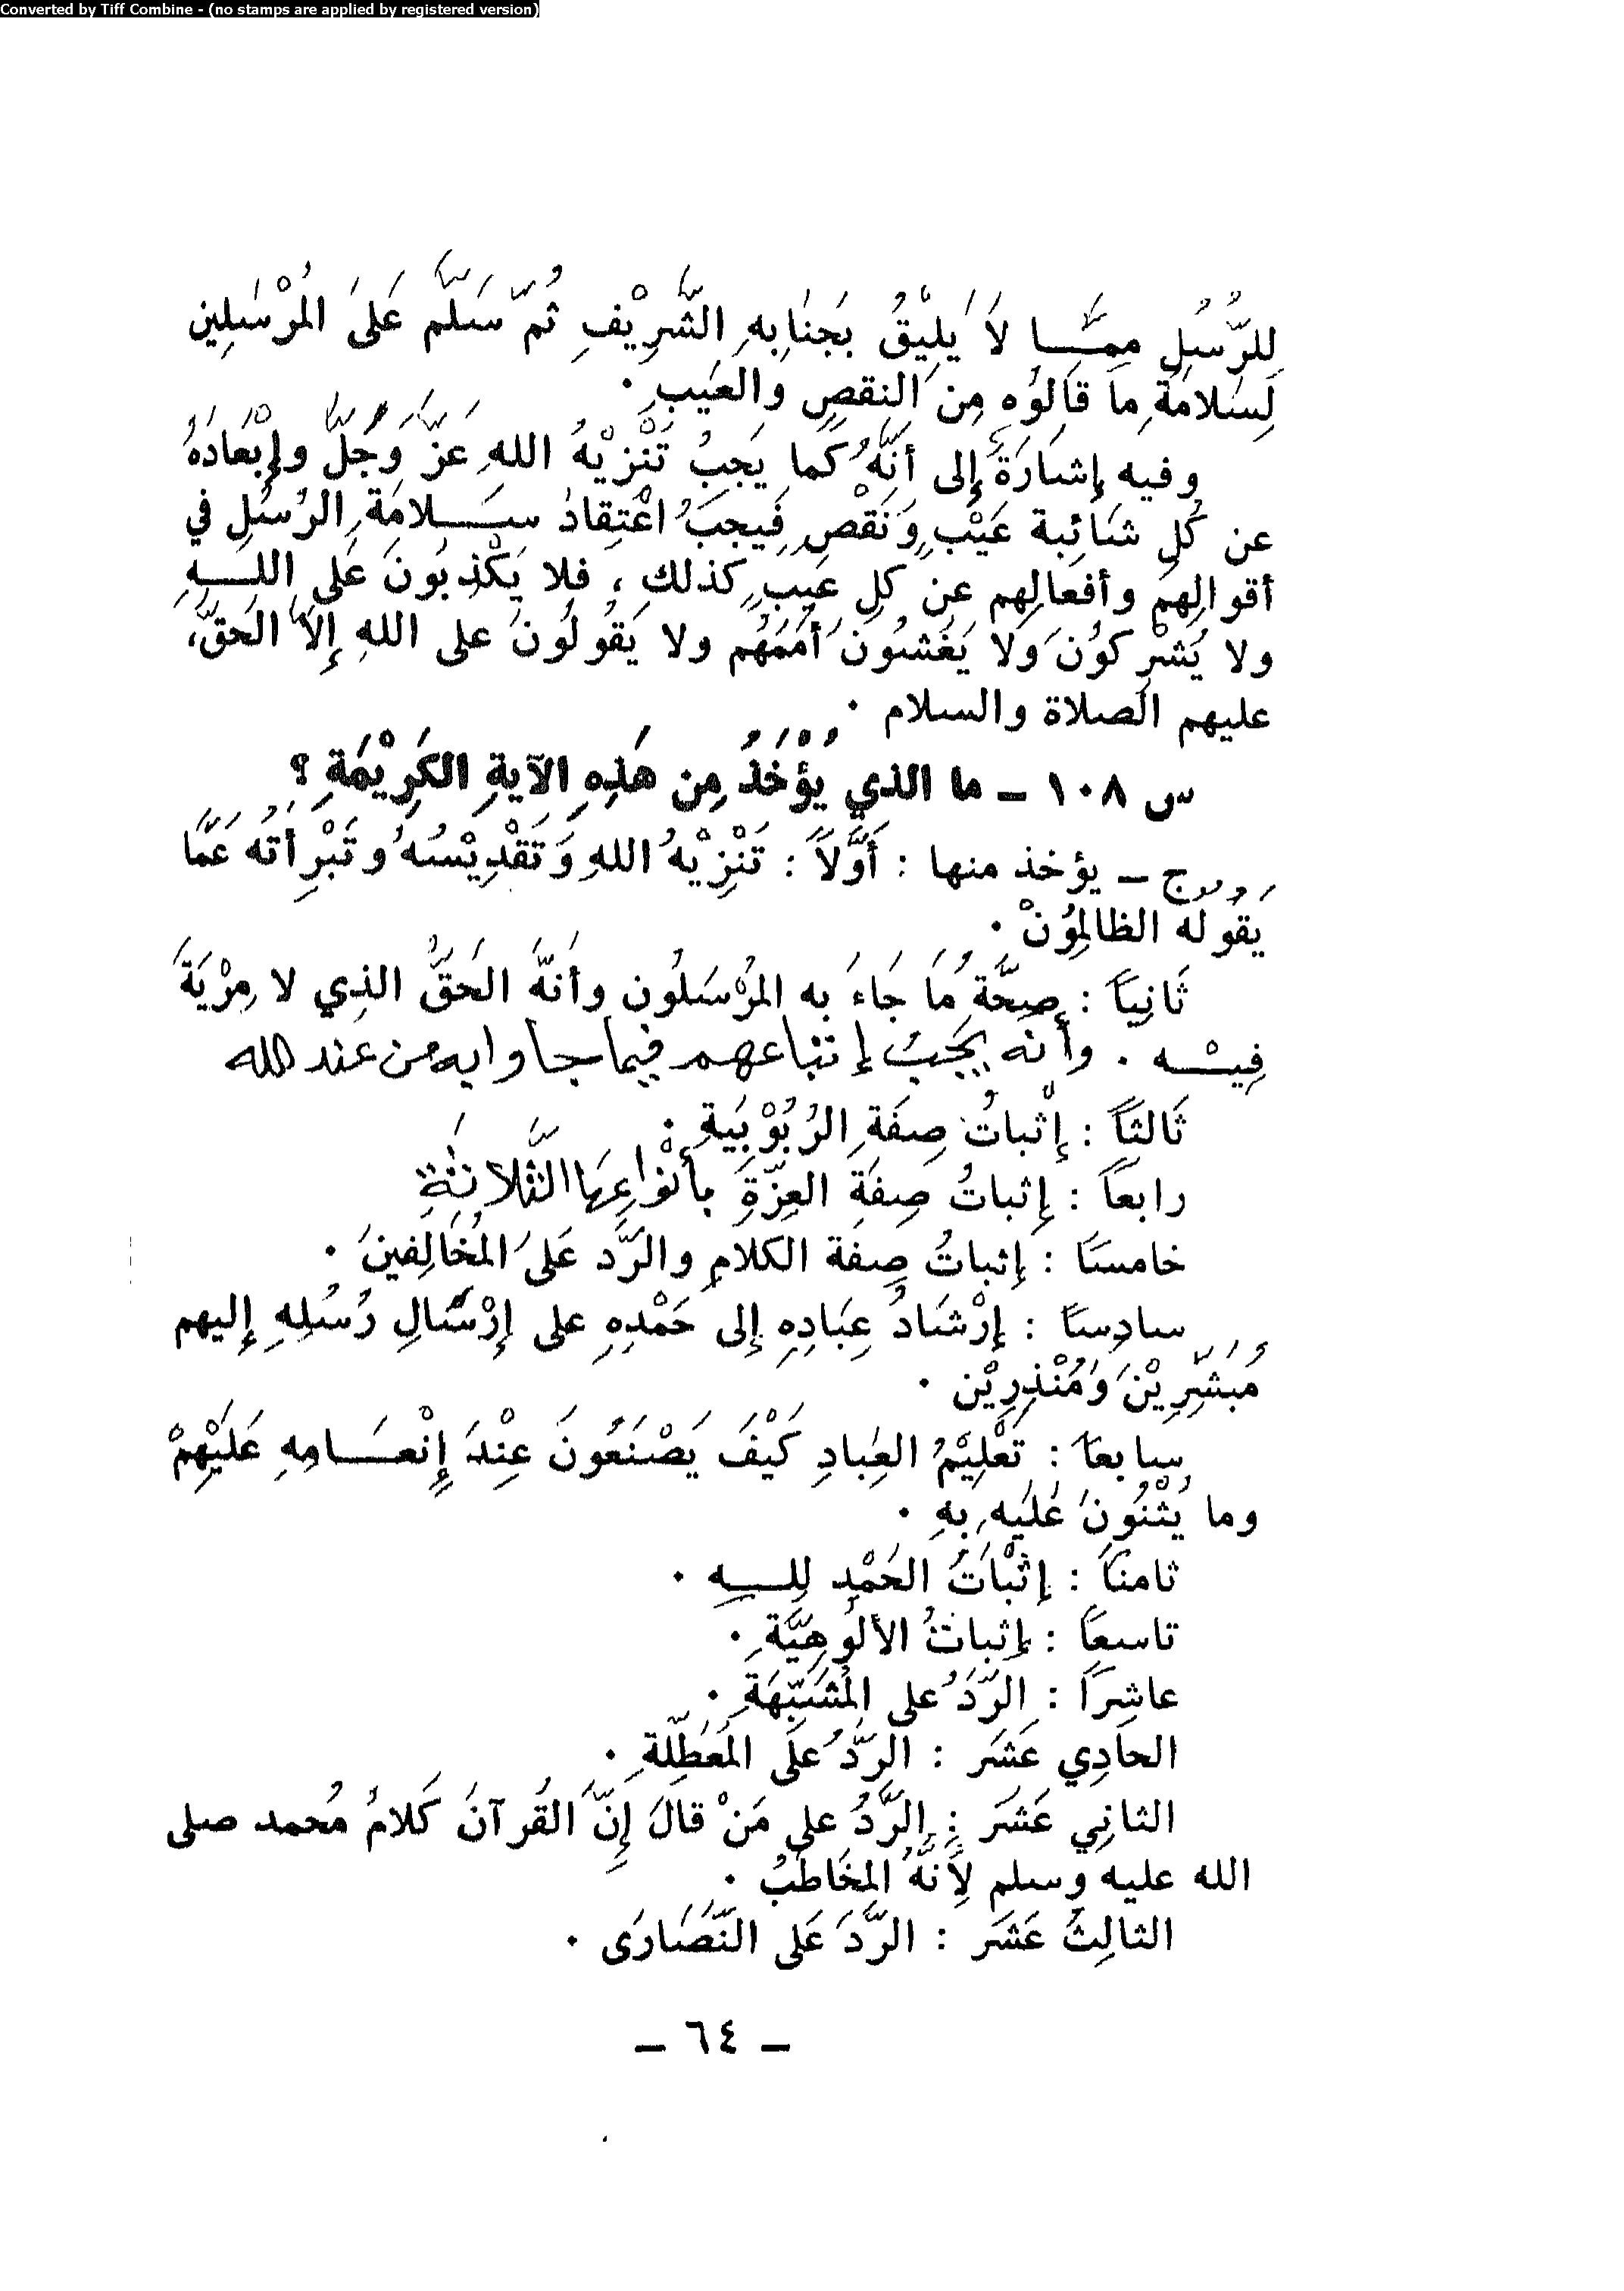 Converted by Tiff Combine - (no stamps are applied by registered version)
لِلرُّسُلِ مِمَّا لاَ يَلِيْقُ بِجَنَابِهِ الشَّرِيْفِ ثُمَّ سَلَّمَ عَلَى المُرْسَلِين
لِسَلامَةِ مَا قَالُوْه مِن النقصِ والعَيبِ .
وفيه إشَارَةٌ إلى أَنَّهُ كَما يَجِبُ تَنْزِيْهُ اللهِ عَزَّ وَجَلَّ وإبْعَادُهُ
عن كُلِ شَائِبة عَيْبٍ وَنَقْصٍ فَيجِبُ اعْتِقَادُ سَلامَةِ الرُسُلِ في
أقوالِهِم وأفعالِهم عن كلِ عَيبٍ كذلك ، فلا يَكْذِبُونَ عَلى اللهِ
ولا يُشْرِكوُنَ وَلا يَغُشُوُن أُمَمَهُم ولا يَقُولُونَ على اللهِ إلاَّ الحَقَّ،
عليهم الصلاة والسلام .
س ١٠٨ ــ ما الذي يُؤْخَذُ مِن هَذِهِ الآيةِ الكَرِيْمَةِ ؟
ج ــ يؤخذ منها : أَوَّلاً : تَنْزِيْهُ اللهِ وَتَقْدِيْسُهُ وتَبْرِأتُه عَمَّا
يَقُولُه الظالِمُوُنْ .
ثَانِياً : صِحَّةُ مَا جَاءَ به المُرْسَلُون وأنَّهُ الحَقُّ الذِي لا مِرْيَةَ
فِيْه . وأنه يَجِبُ إتباعهم فيما جاوا به من عند الله
ثَالثاً : إثْباتُ صِفَةِ الرُبُوْبِيَةِ .
رابعاً : إثباتُ صِفَةِ العِزَّةِ بأنْواعِهَا الثَّلاثَةِ
خامساً : إثباتُ صِفَة الكلامِ والرَّد عَلَى المُخَالِفينَ .
سادِساً : إرْشَادُ عِبَادِهِ إلى حَمْدِهِ على إرْسَالِ رُسُلِهِ إليهم
مُبَشِّرِيْنَ وَمُنْذِرِيْن .
سابعاً : تَعْلِيْمُ العِبادِ كَيْفَ يَصْنَعُونَ عِنْدَ إنْعَامِهِ عَلَيْهِمْ
وما يُثْنُونَ عَلَيه بِهِ .
ثامناً : إثْبَاتُ الحَمْدِ لِلهِ .
تاسعاً : إثباتُ الألُوهِيَّةِ .
عاشِراً : الرَّدُ على المُشَبِّهَةِ .
الحادِي عَشَر : الرَّدُ عَلَى المُعَطِّلَةِ .
الثانِي عَشَر : الرَّدُ على مَنْ قالَ إنَّ القُرآنَ كَلامُ مُحمد صلى
الله عليه وسلم لأنَّهُ المخَاطَبُ .
الثالِثُ عَشَر : الرَّدُ عَلَى النَّصَارَى .
ــ ٦٤ ــ